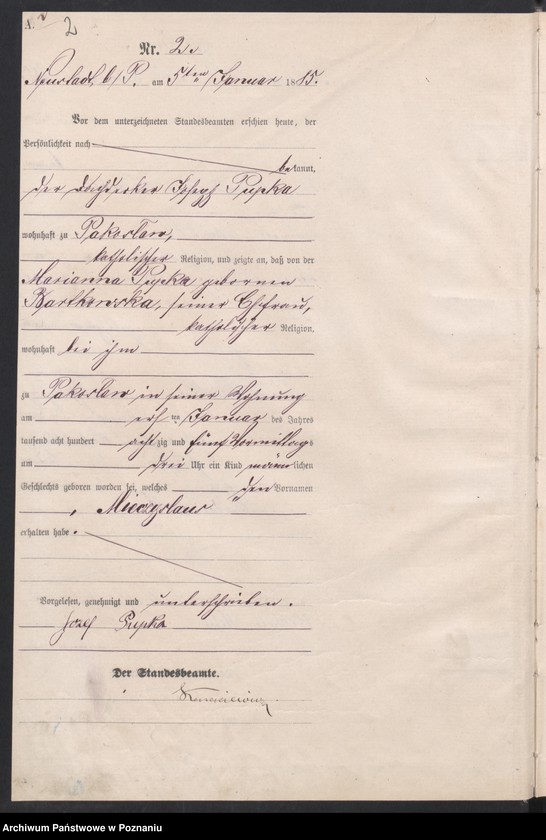 A. 2
Nr. 2.
Neustadt b/P. am 5ten Januar 1885.
Vor dem unterzeichneten Standesbeamten erschien heute, der
Persönlichkeit nach
bekannt,
der Dachdecker Joseph Pupka
wohnhaft zu Pakoslaw,
katholischer Religion, und zeigte an, daß von der
Marianna Pupka gebornen
Bartkowska, seiner Ehefrau,
katholischer Religion,
wohnhaft bei ihm
zu Pakoslaw in seiner Wohnung
am ersten Januar des Jahres
tausend acht hundert achtzig und fünf Vormittags
um drei Uhr ein Kind männlichen
Geschlechts geboren worden sei, welches den Vornamen
Mieczyslaus
erhalten habe.
Vorgelesen, genehmigt und unterschrieben.
Józef Pupka
Der Standesbeamte.
Archiwum Państwowe w Poznaniu